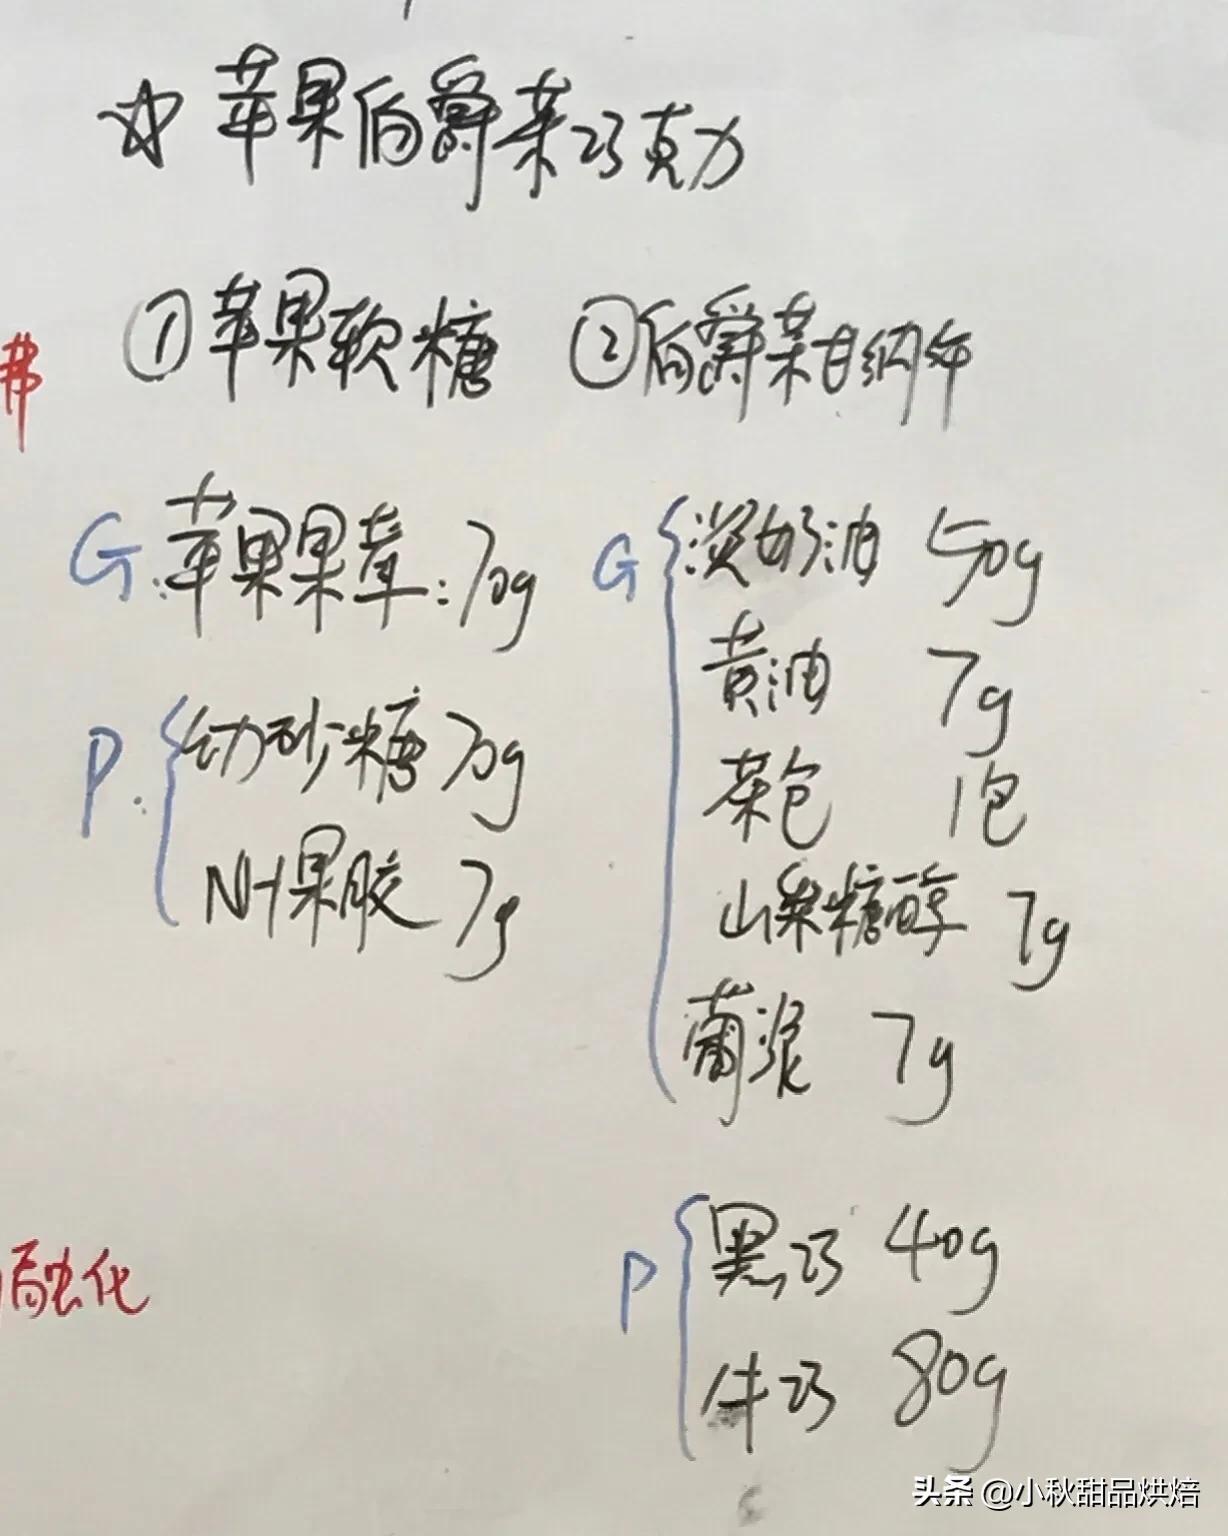 ☆ 苹果伯爵茶巧克力
①苹果软糖
②伯爵茶甘纳许
沸
G: 苹果果茸: 70g
P: 幼砂糖 70g
NH果胶 7g
G 淡奶油 50g
黄油 7g
茶包 1包
山梨糖醇 7g
葡浆 7g
P 黑巧 40g
牛巧 80g
融化
头条 @小秋甜品烘焙